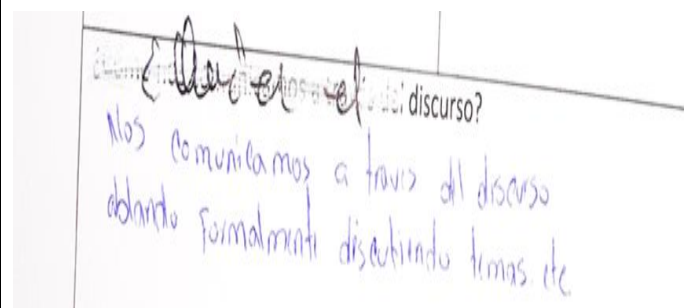 ¿Qué es el discurso?
Nos comunicamos a traves del discurso
ablando formalmente discutiendo temas etc